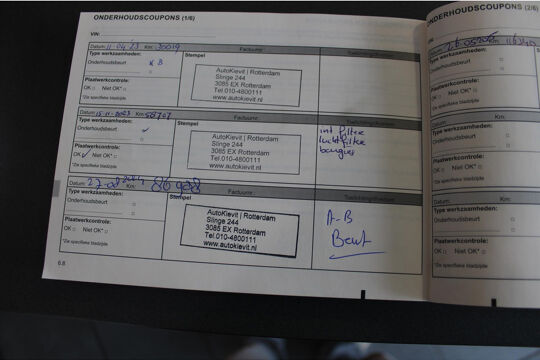 ONDERHOUDSCOUPONS (1/6)
VIN:
Datum: 11-04-'23 Km: 30019
Factuurnr.
Type werkzaamheden:
Onderhoudsbeurt
B
Plaatwerkcontrole:
OK Niet OK*
*Zie specifieke bladzijde
Stempel
AutoKievit | Rotterdam
Slinge 244
3085 EX Rotterdam
Tel.010-4800111
www.autokievit.nl
Km:
Factuurnr.
Type werkzaamheden:
Onderhoudsbeurt
Plaatwerkcontrole:
OK Niet OK*
*Zie specifieke bladzijde
Stempel
AutoKievit | Rotterdam
Slinge 244
3085 EX Rotterdam
Tel.010-4800111
www.autokievit.nl
int filter
luchtfilter
bougies
Datum: Km: 86908
Factuurnr.
Type werkzaamheden:
Onderhoudsbeurt
Plaatwerkcontrole:
OK Niet OK*
*Zie specifieke bladzijde
Stempel
AutoKievit | Rotterdam
Slinge 244
3085 EX Rotterdam
Tel.010-4800111
www.autokievit.nl
A-B
Beurt
6.8
ONDERHOUDSCOUPONS (2/6)
VIN:
Type werkzaamheden:
Onderhoudsbeurt
Plaatwerkcontrole:
OK Niet OK*
*Zie specifieke bladzijde
Datum:
Type werkzaamheden:
Onderhoudsbeurt
Plaatwerkcontrole:
OK Niet OK*
*Zie specifieke bladzijde
Datum:
Type werkzaamheden:
Onderhoudsbeurt
Plaatwerkcontrole:
OK Niet OK*
*Zie specifieke bladzijde